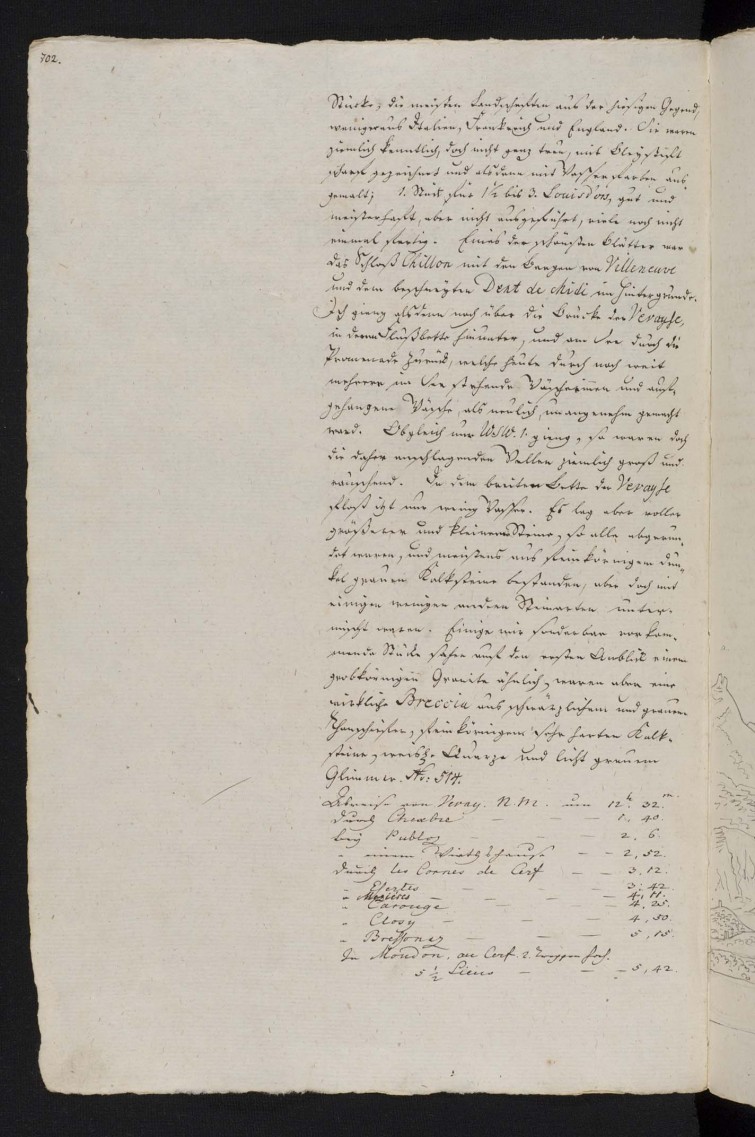 702.
Stücke, die meisten Landschaften aus der hiesigen Gegend,
weniger aus Italien, Frankreich und England. Sie waren
ziemlich kenntlich, doch nicht ganz treu, mit Bleystift
scharf gezeichnet und alsdann mit Wasserfarben aus-
gemalt; 1. Stück für 1½ bis 3. Louisdors, gut und
meisterhaft, aber nicht ausgeführt, viele noch nicht
einmal fertig. Eines der schönsten Blätter war
das Schloß Chillon mit den Bergen von Villeneuve
und dem beschneyten Dent de Midi im Hintergrunde.
Ich gieng alsdann noch über die Brücke der Veraÿse,
in deren Flußbette hinunter, und am See durch die
Promenade zurück, welche heute durch noch weit
mehrere im See stehende Wäscherinnen und auf-
gehangene Wäsche, als neulich, unangenehm gemacht
ward. Obgleich nur W.S.W. 1. gieng, so waren doch
die daher anschlagenden Wellen ziemlich groß und
rauschend. In dem breiten Bette der Veraÿse
floß itzt nur wenig Wasser. Es lag aber voller
größerer und kleinerer Steine, so alle abgerun-
det waren, und meistens aus feinkörnigem dun-
kel grauen Kalksteine bestanden, aber doch mit
einigen wenigen andern Steinarten unter-
mischt waren. Einige mir sonderbar vorkom-
mende Stücke sahen auf den ersten Anblick einem
grobkörnigen Granite ähnlich, waren aber eine
wirkliche Breccia aus schwärzlichem und grauem
Thonschiefer, feinkörnigem sehr harten Kalk-
steine, weißem Quarze und licht grauem
Glimmer. No: 514.
Abreise von Vevay. N.M. um 12h 32.m
durch Chexbre — — — 1. 40.
bey Publoz — — — 2. 6.
" einem Wirthshause — — 2, 52.
durch les Cornes de Cerf — — 3, 12.
" Esertes — — — 3, 42.
" Mezieres — — — 4, 11.
" Carouge — — — 4, 25.
" Closy — — — 4, 50.
" Bressonaz — — — 5, 15.
In Moudon, au Cerf. 2. Treppen hoch.
5 ½ Lieus — — — 5, 42.